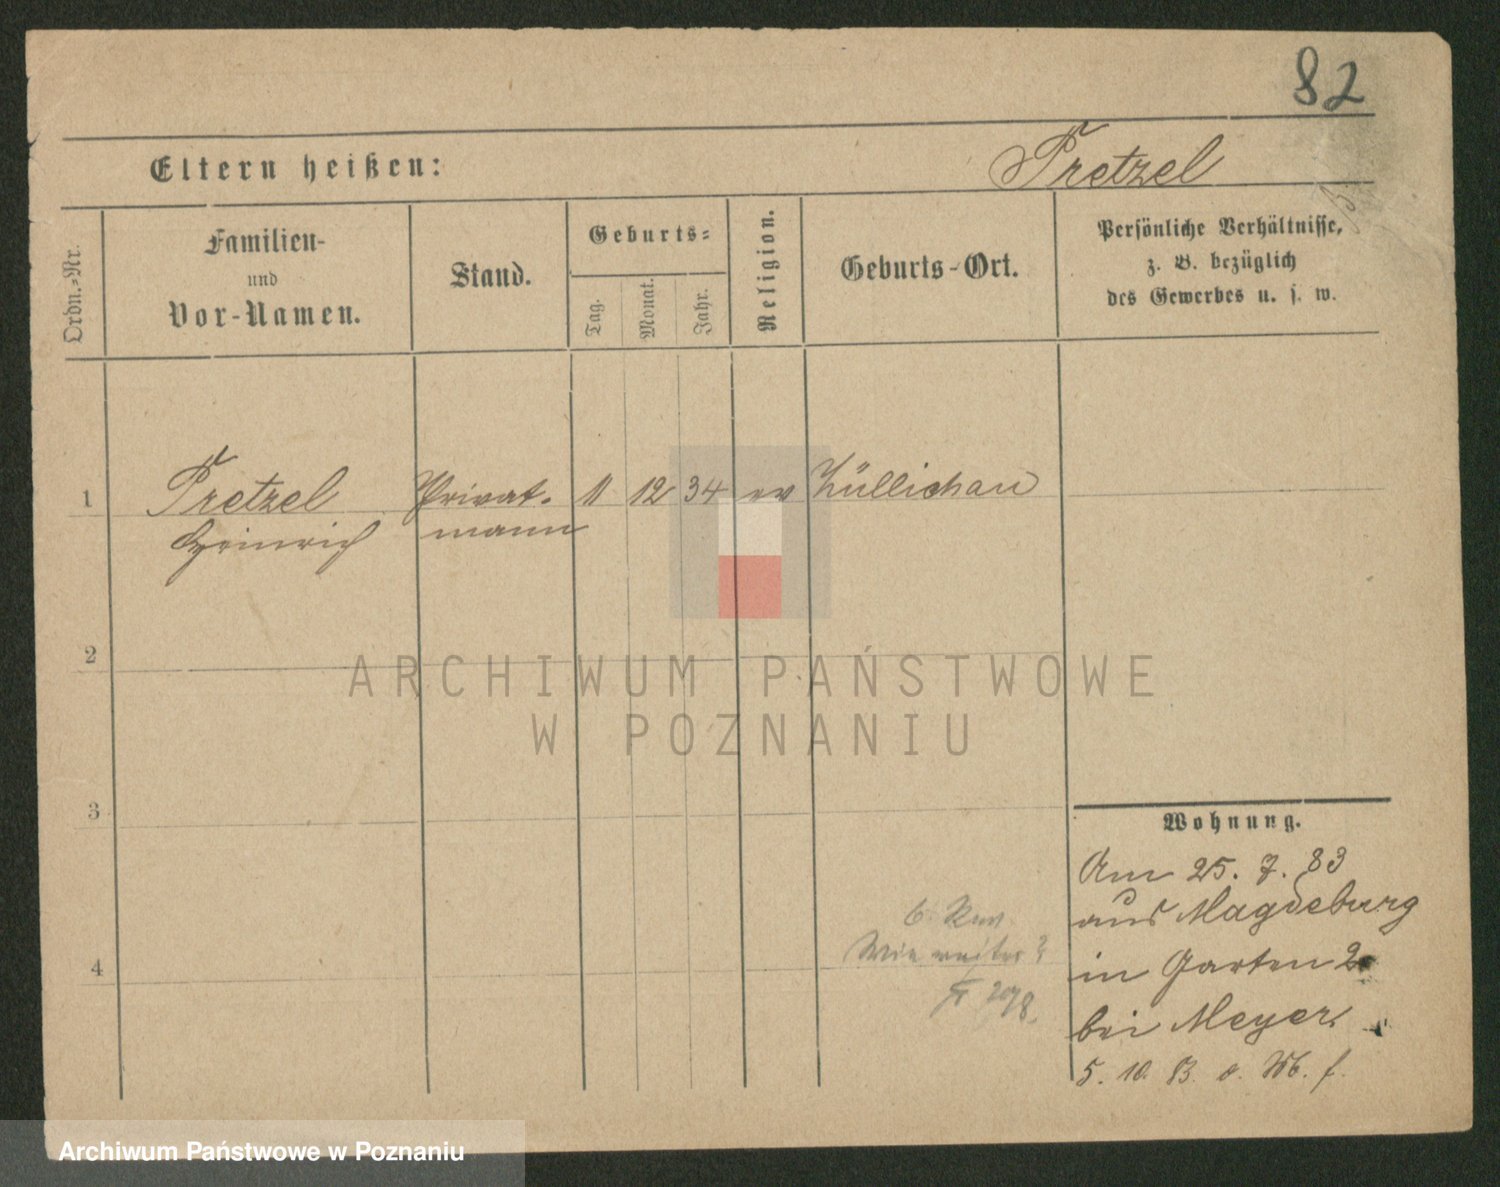 82
Eltern heißen:
Pretzel
Ordn.-Nr.
Familien-
und
Vor-Namen.
Stand.
Geburts-
Tag.
Monat.
Jahr.
Religion.
Geburts-Ort.
Persönliche Verhältnisse,
z. B. bezüglich
des Gewerbes u. s. w.
1
Pretzel
Heinrich
Privat-
mann
11
12
34
ev
Züllichau
2
3
4
Wohnung.
Am 25. 7. 83
aus Magdeburg
in Garten 2
bei Meyer
5. 10. 83.
Wie weiter?
ARCHIWUM PAŃSTWOWE
W POZNANIU
Archiwum Państwowe w Poznaniu